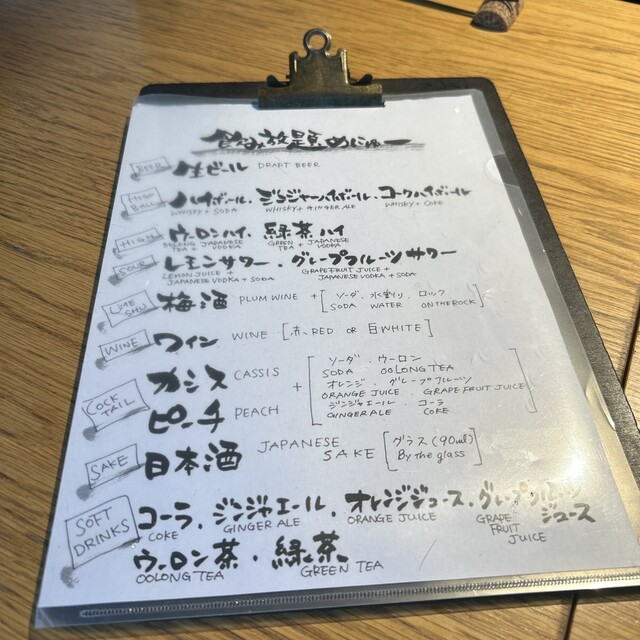 飲み放題めにゅー
BEER 生ビール DRAFT BEER
HIGH BALL ハイボール、ジンジャーハイボール、コークハイボール
WHISKY + SODA WHISKY + GINGER ALE WHISKY + COKE
HIGH ウーロンハイ、緑茶ハイ
OOLONG TEA + JAPANESE VODKA GREEN TEA + JAPANESE VODKA
SOUR レモンサワー・グレープフルーツサワー
LEMON JUICE + JAPANESE VODKA + SODA GRAPEFRUIT JUICE + JAPANESE VODKA + SODA
梅酒 PLUM WINE + [ソーダ、水割り、ロック
SODA WATER ON THE ROCK]
WINE ワイン WINE [赤、RED OR 白 WHITE]
COCKTAIL カシス CASSIS
ピーチ PEACH
+ [ソーダ、ウーロン
SODA OOLONG TEA
オレンジ、グレープフルーツ
ORANGE JUICE、GRAPEFRUIT JUICE
ジンジャエール、コーラ
GINGER ALE COKE]
SAKE 日本酒 JAPANESE SAKE [グラス(90ml)
By the glass]
SOFT DRINKS コーラ、ジンジャエール、オレンジジュース、グレープフルーツジュース
COKE GINGER ALE ORANGE JUICE GRAPE FRUIT JUICE
ウーロン茶・緑茶
OOLONG TEA GREEN TEA